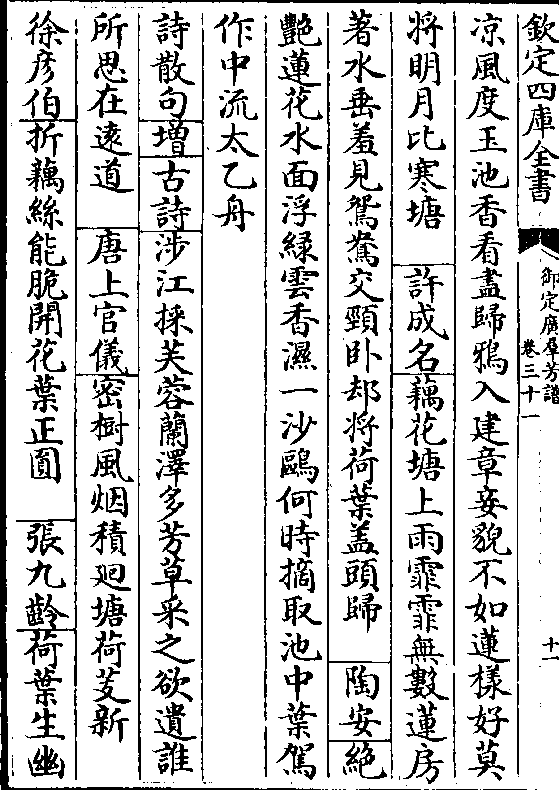 欽定四庫全書
御定廣羣芳譜
卷三十一
十一
凉風度玉池香看盡歸鴉入建章妾貌不如蓮様好莫
将明月比寒塘 許成名藕花塘上雨霏霏無數蓮房
著水垂羞見鴛鴦交頸卧却将荷葉盖頭歸 陶安絶
艷蓮花水面浮緑雲香濕一沙鷗何時摘取池中葉駕
作中流太乙舟
詩散句增古詩涉江採芙蓉蘭澤多芳草采之欲遺誰
所思在逺道 唐上官儀密樹風烟積迴塘荷芰新
徐彦伯折藕絲能脆開花葉正圎 張九齡荷葉生幽